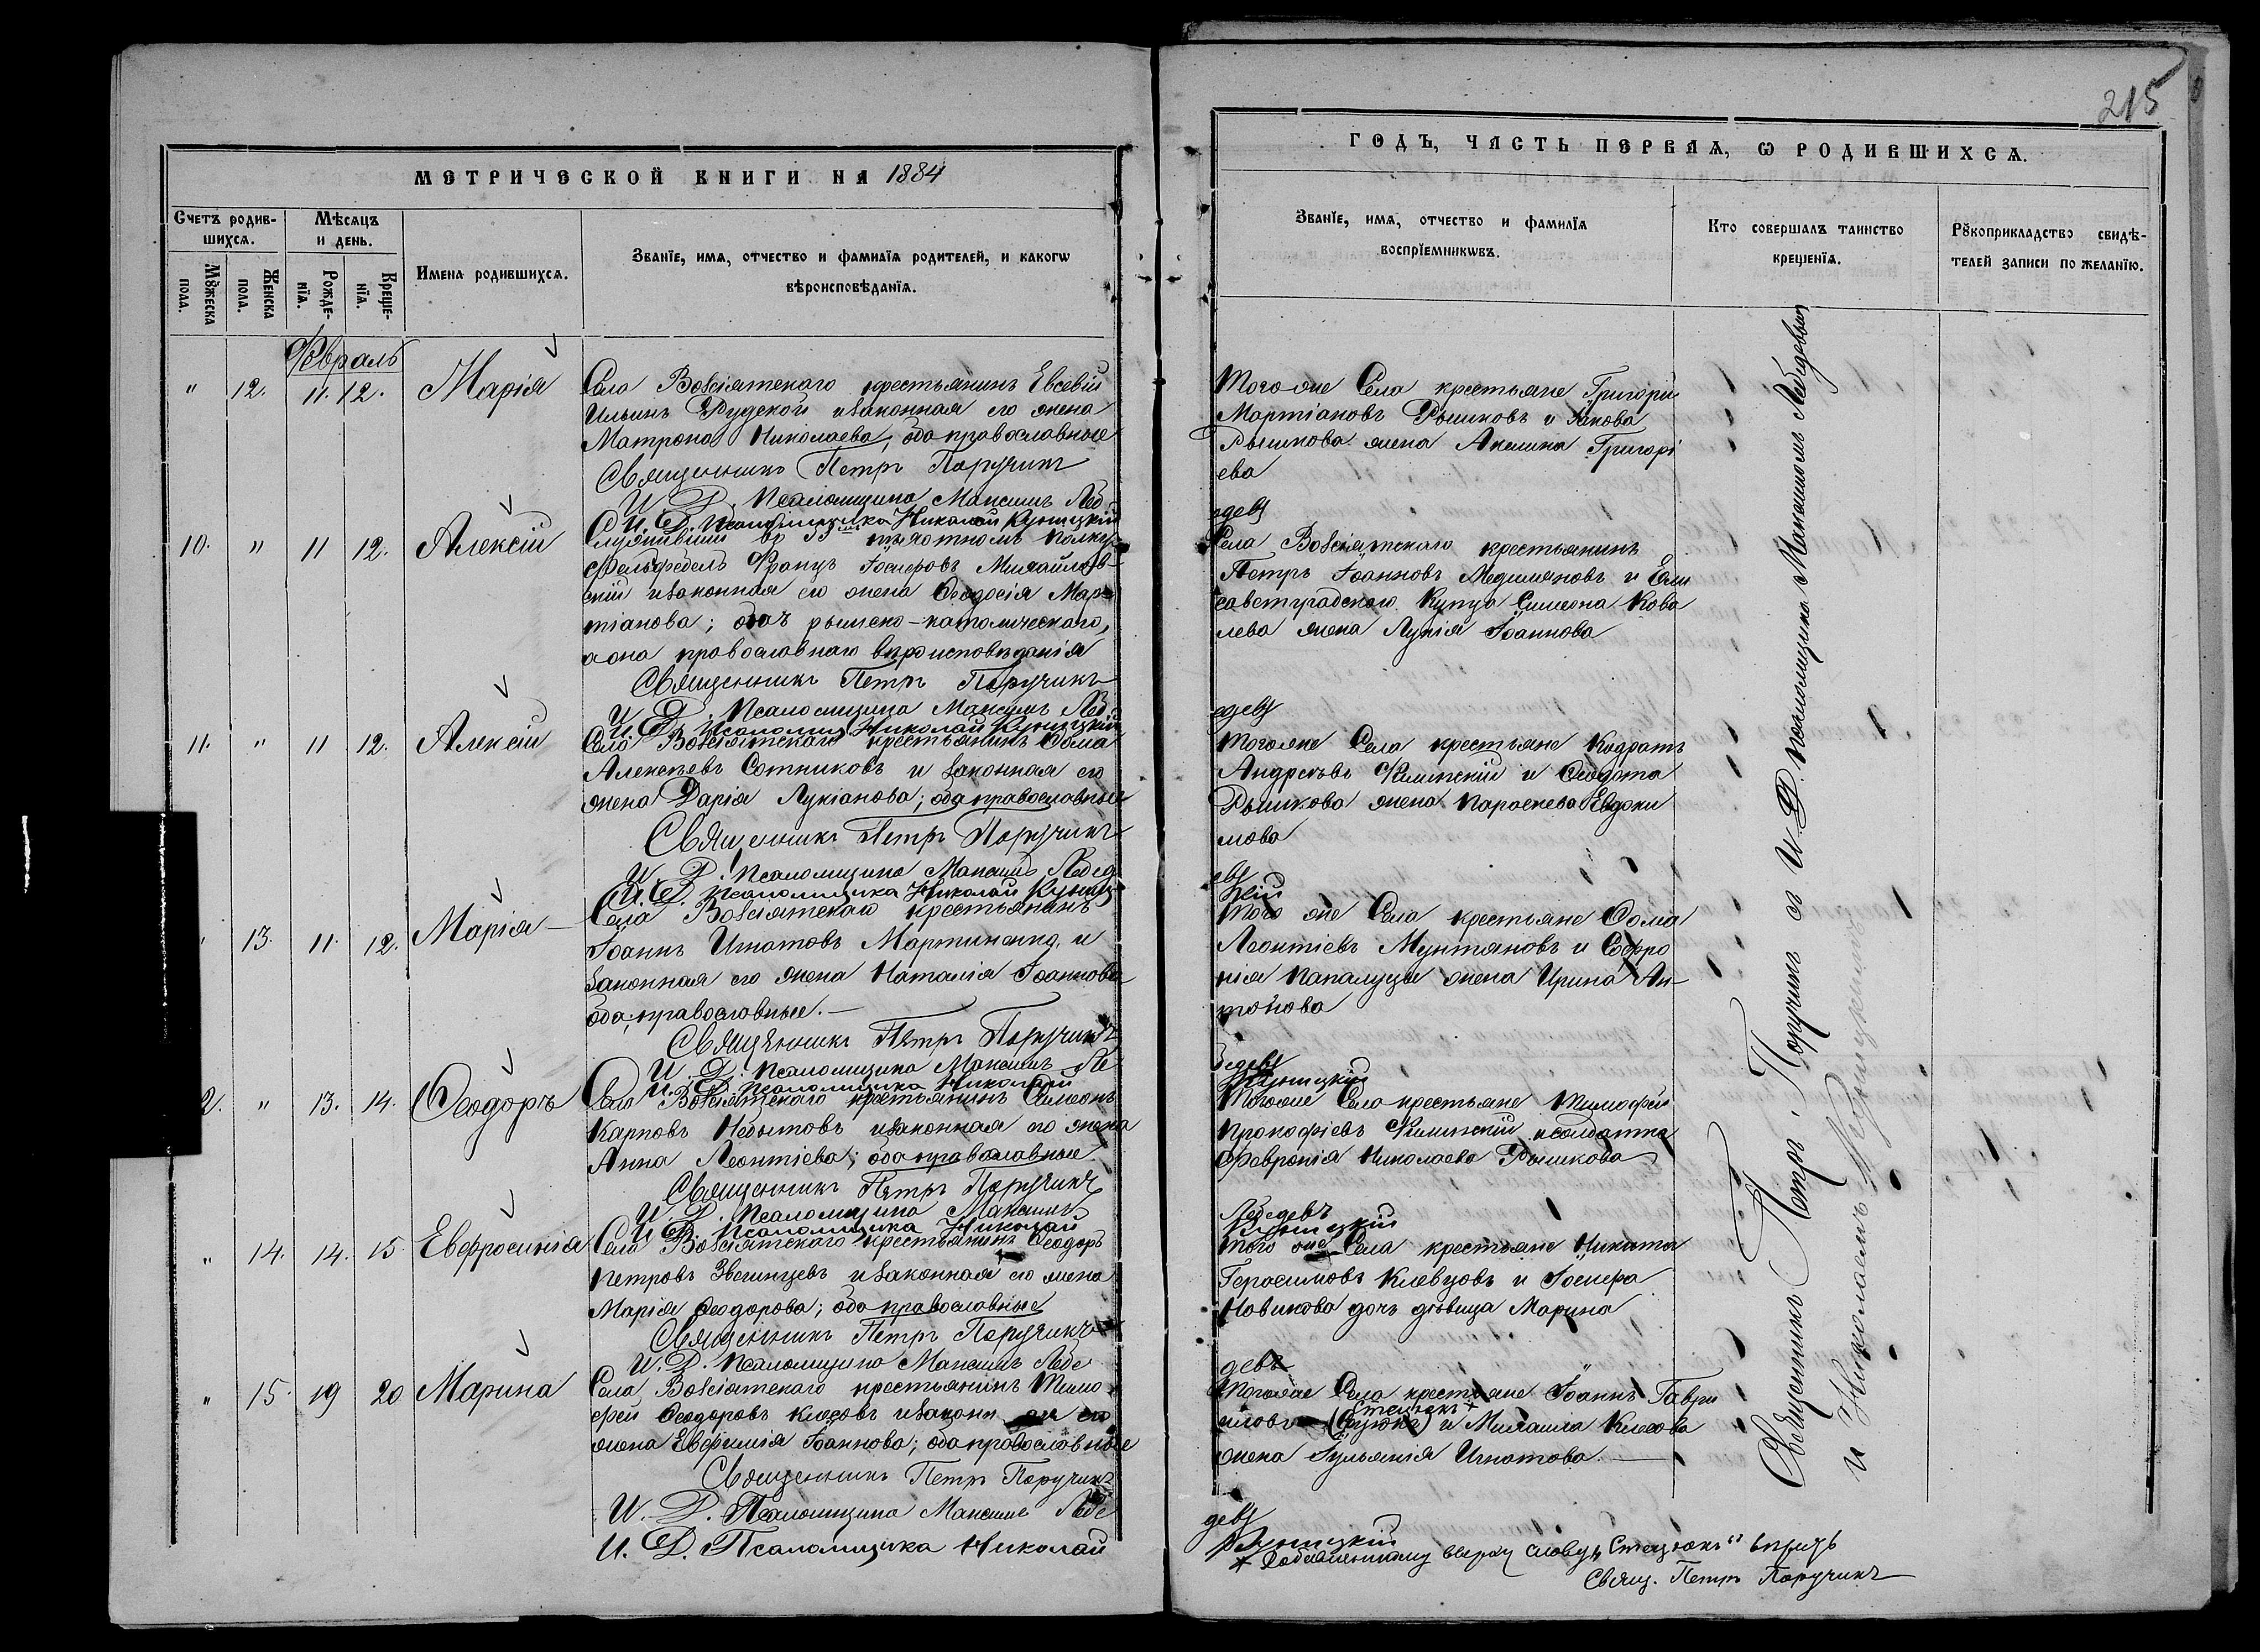 215
МЕТРИЧЕСКОЙ КНИГИ НА 1884
ГОДЪ, ЧАСТЬ ПЕРВАЯ, Ѡ РОДИВШИХСЯ.
Счетъ родив-
шихся.
Мѣсяцъ
и день.
Мꙋжеска
пола.
Женска
пола.
Рожде-
нїя.
Креще-
нїя.
Имена родившихся.
Званїе, имя, отчество и фамилїя родителей, и какогѡ
вѣроисповѣданїя.
Званїе, имя, отчество и фамилїя
воспрїемникѡвъ.
Кто совершалъ таинство
крещенїя.
Рꙋкоприкладство свидѣ-
телей записи по желанїю.
Февраль
" 12. 11. 12. Марія
Села Возсіятскаго крестьянинъ Евсевій
Ильинъ Рудской и законная его жена
Матрона Николаева; оба православные
Священникъ Петръ Поручикъ
И. Д. Псаломщика Максимъ Леб
И. Д. Псаломщика Николай Куницкій
Того же Села крестьяне Григорій
Мартіановъ Рыжковъ и Іакова
Рыжкова жена Акилина Григорі
ева
едевъ
10. " 11 12. Алексій
Служившій въ 55мъ пѣхотномъ полку
Фельдфебель Францъ Іосифовъ Михайлов-
скій и законная его жена Ѳеодосія Мар-
тіанова; онъ римско-католическаго,
а она православнаго вѣроисповѣданія
Священникъ Петръ Поручикъ
И. Д. Псаломщика Максимъ Леб
И. Д. Псаломщ Николай Куницкій
Села Возсіятскаго крестьянинъ
Петръ Іоанновъ Медимяновъ и Ели
саветградскаго Купца Симеона Кова
лева жена Лукія Іоаннова
едевъ
11. " 11 12. Алексій
Села Возсіятскаго крестьянинъ Ѳома
Алексѣевъ Сотниковъ и законная его
жена Дарія Лукіанова; оба православные
Священникъ Петръ Поручикъ
И. Д. Псаломщика Максимъ Лебед
И. Д. Псаломщика Николай Куниц
Того же Села крестьяне Кодратъ
Андреевъ Килинскій и Ѳеодота
Рыжкова жена Параскева Евдоки
мова
евъ
кій
13. 11. 12. Марія
Села Возсіятскаго крестьянинъ
Іоаннъ Игнатовъ Мартиненко и
законная его жена Наталія Іоаннова
оба православные.
Священникъ Петръ Поручикъ
И. Д. Псаломщика Максимъ Ле
И. Д. Псаломщика Николай
Того же Села крестьяне Ѳома
Леонтіевъ Мунтяновъ и Софро
нія Папалуцы жена Ирина Ан-
тонова
бедевъ
Куницкій
2. " 13. 14. Ѳеодоръ
Села Возсіятскаго крестьянинъ Симеонъ
Карповъ Небытовъ и законная его жена
Анна Леонтіева; оба православные
Священникъ Петръ Поручикъ
И. Д. Псаломщика Максимъ
И. Д. Псаломщика Николай
Того же Села крестьяне Тимофей
Прокофіевъ Килинскій и солдатка
Февронія Николаева Рыжкова
Лебедевъ
Куницкій
" 14. 14. 15. Евфросинія
Села Возсіятскаго крестьянинъ Ѳеодоръ
Петровъ Звегинцевъ и законная его жена
Марія Ѳеодорова; оба православные
Священникъ Петръ Поручикъ
И. Д. Псаломщика Максимъ Лебе
Того же Села крестьяне Никита
Герасимовъ Клевцовъ и Іосифа
Новикова дочь дѣвица Марина
девъ
" 15. 19 20 Марина
Села Возсіятскаго крестьянинъ Тимо
фей Ѳеодоровъ Клюсовъ и законн ая его
жена Евфимія Іоаннова; оба православные
Священникъ Петръ Поручикъ
И. Д. Псаломщика Максимъ Лебе
И. Д. Псаломщика Николай
Того же Села крестьяне Іоаннъ Гаври
Стецюкъ *
иловъ и Михаила Клюсова
жена Іульянія Игнатова.
девъ
Куницкій
* Добавленному вверху слову „Стецюкъ" вѣрить
Свящ. Петръ Поручикъ
Священникъ Петръ Поручикъ съ И. Д. псаломщика Максимомъ Лебедевымъ
и Николаемъ Куницкимъ